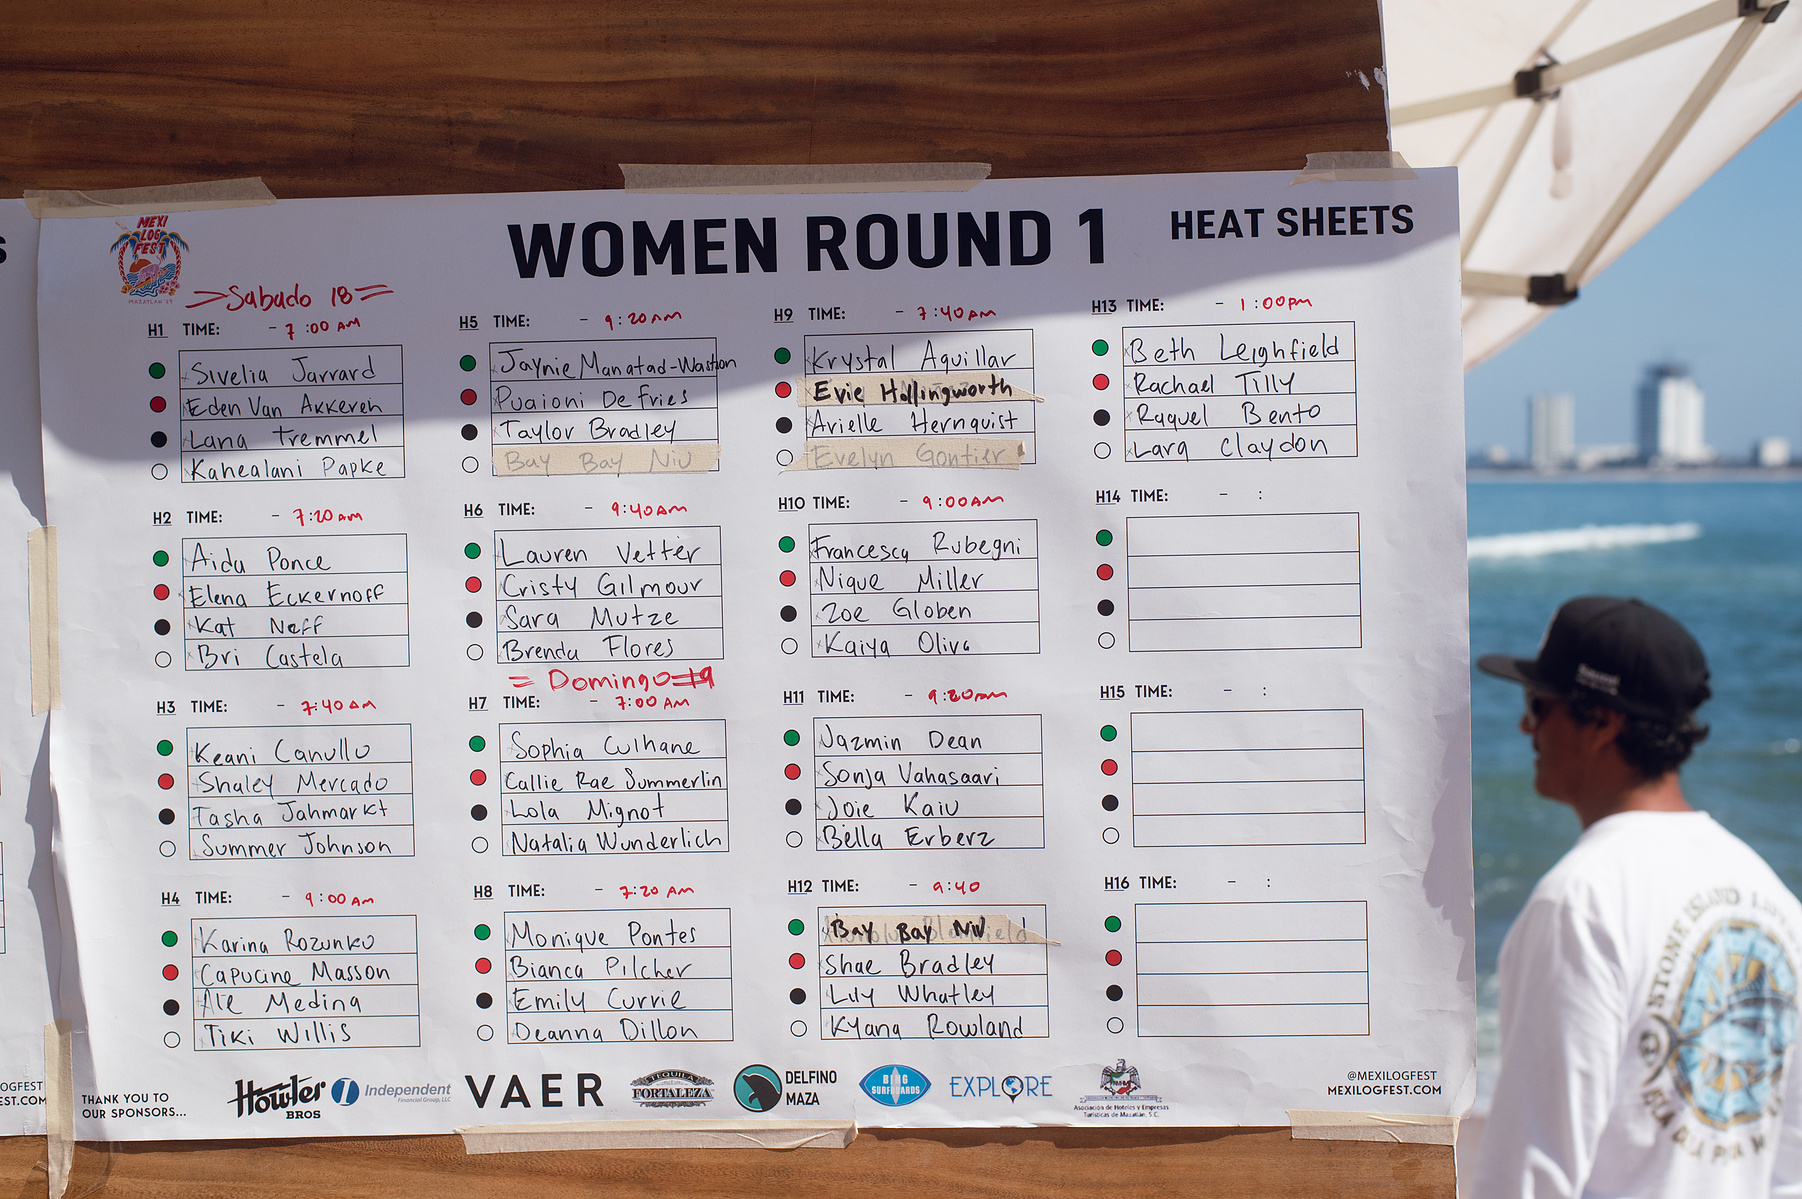 MEXI
LOG
FEST
MAZATLAN '24
WOMEN ROUND 1
HEAT SHEETS
Sabado 18
H1 TIME: - 7:00 AM
Sivelia Jarrard
Eden Van Akkeren
Lana Tremmel
Kahealani Papke
H2 TIME: - 7:20 AM
Aida Ponce
Elena Eckernoff
Kat Neff
Bri Castela
H3 TIME: - 7:40 AM
Keani Canullo
Shaley Mercado
Tasha Jahmarkt
Summer Johnson
H4 TIME: - 9:00 AM
Karina Rozunko
Capucine Masson
Ale Medina
Tiki Willis
H5 TIME: - 9:20 AM
Jaynie Manatad-Waston
Puaioni De Fries
Taylor Bradley
Bay Bay Niu
H6 TIME: - 9:40 AM
Lauren Vetter
Cristy Gilmour
Sara Mutze
Brenda Flores
= Domingo 19
H7 TIME: - 7:00 AM
Sophia Culhane
Callie Rae Summerlin
Lola Mignot
Natalia Wunderlich
H8 TIME: - 7:20 AM
Monique Pontes
Bianca Pilcher
Emily Currie
Deanna Dillon
H9 TIME: - 7:40 AM
Krystal Aguillar
Evie Hollingworth
Arielle Hernquist
Evelyn Gontier
H10 TIME: - 9:00 AM
Francesca Rubegni
Nique Miller
Zoe Globen
Kaiya Oliva
H11 TIME: - 9:20 AM
Jazmin Dean
Sonja Vahasaari
Joie Kaiu
Bella Erberz
H12 TIME: - 9:40
Bay Bay Niu
Shae Bradley
Lily Whatley
Kyana Rowland
H13 TIME: - 1:00PM
Beth Leighfield
Rachael Tilly
Raquel Bento
Lara Claydon
H14 TIME: - :
H15 TIME: - :
H16 TIME: - :
THANK YOU TO
OUR SPONSORS...
Howler
BROS
Independent
Financial Group, LLC
VAER
TEQUILA
FORTALEZA
DELFINO
MAZA
BING
SURFBOARDS
EXPLORE
Asociación de Hoteles y Empresas
Turísticas de Mazatlán, S.C.
@MEXILOGFEST
MEXILOGFEST.COM
OGFEST
EST.COM
S
STONE ISLAND